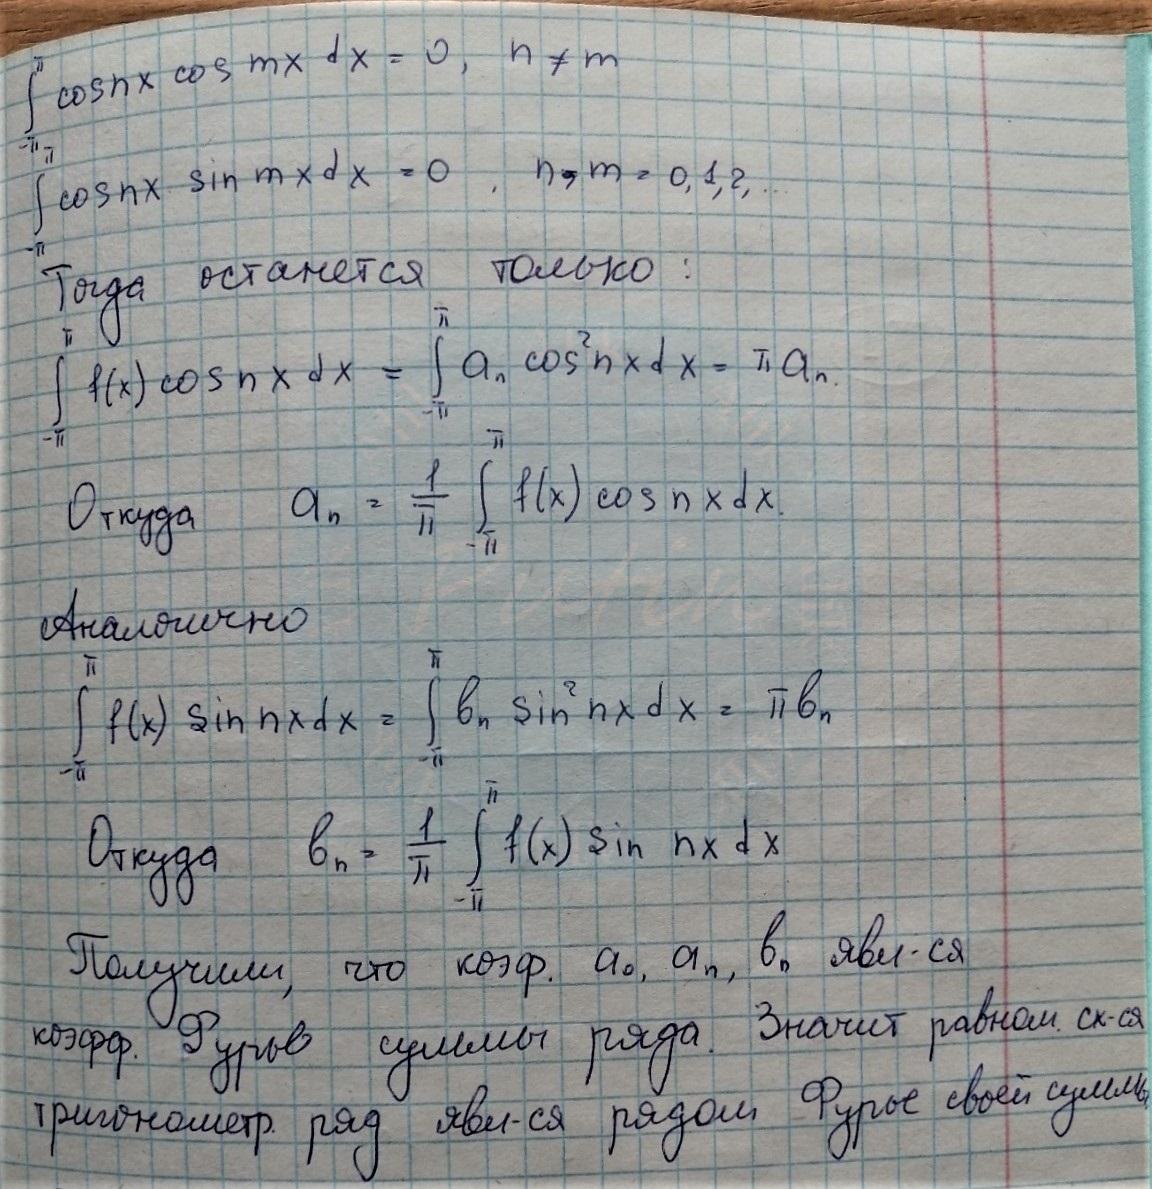 ∫_{-π}^{π} cos nx cos mx dx = 0, n ≠ m
∫_{-π}^{π} cos nx sin mx dx = 0, n, m = 0, 1, 2, ...
Тогда останется только:
∫_{-π}^{π} f(x) cos nx dx = ∫_{-π}^{π} aₙ cos² nx dx = π aₙ.
Откуда aₙ = 1/π ∫_{-π}^{π} f(x) cos nx dx.
Аналогично
∫_{-π}^{π} f(x) sin nx dx = ∫_{-π}^{π} bₙ sin² nx dx = π bₙ
Откуда bₙ = 1/π ∫_{-π}^{π} f(x) sin nx dx
Получили, что коэф. a₀, aₙ, bₙ явл-ся
коэфф. Фурье суммы ряда. Значит равном. сх-ся
тригонометр. ряд явл-ся рядом Фурье своей суммы